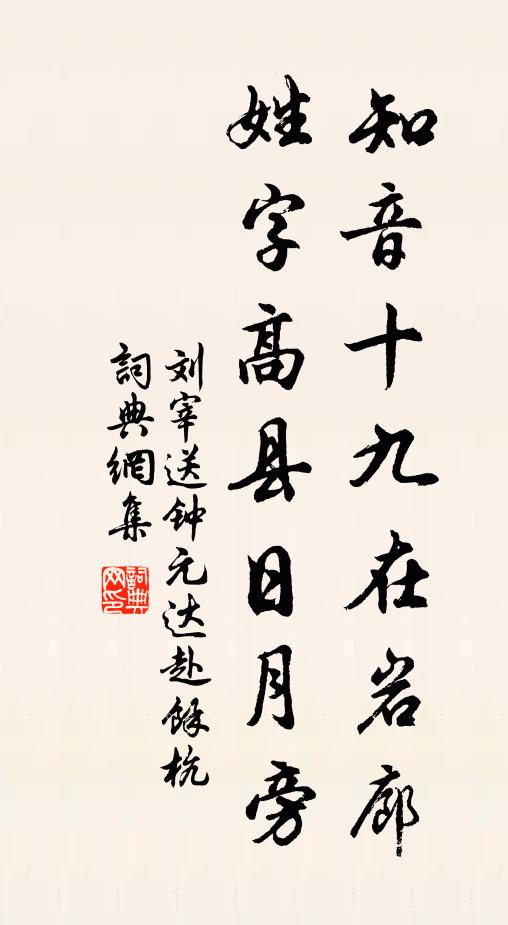 知音十九在岩廊
姓字高县日月旁
刘宰送钟元达赴馀杭
詞典網集
詞典網印